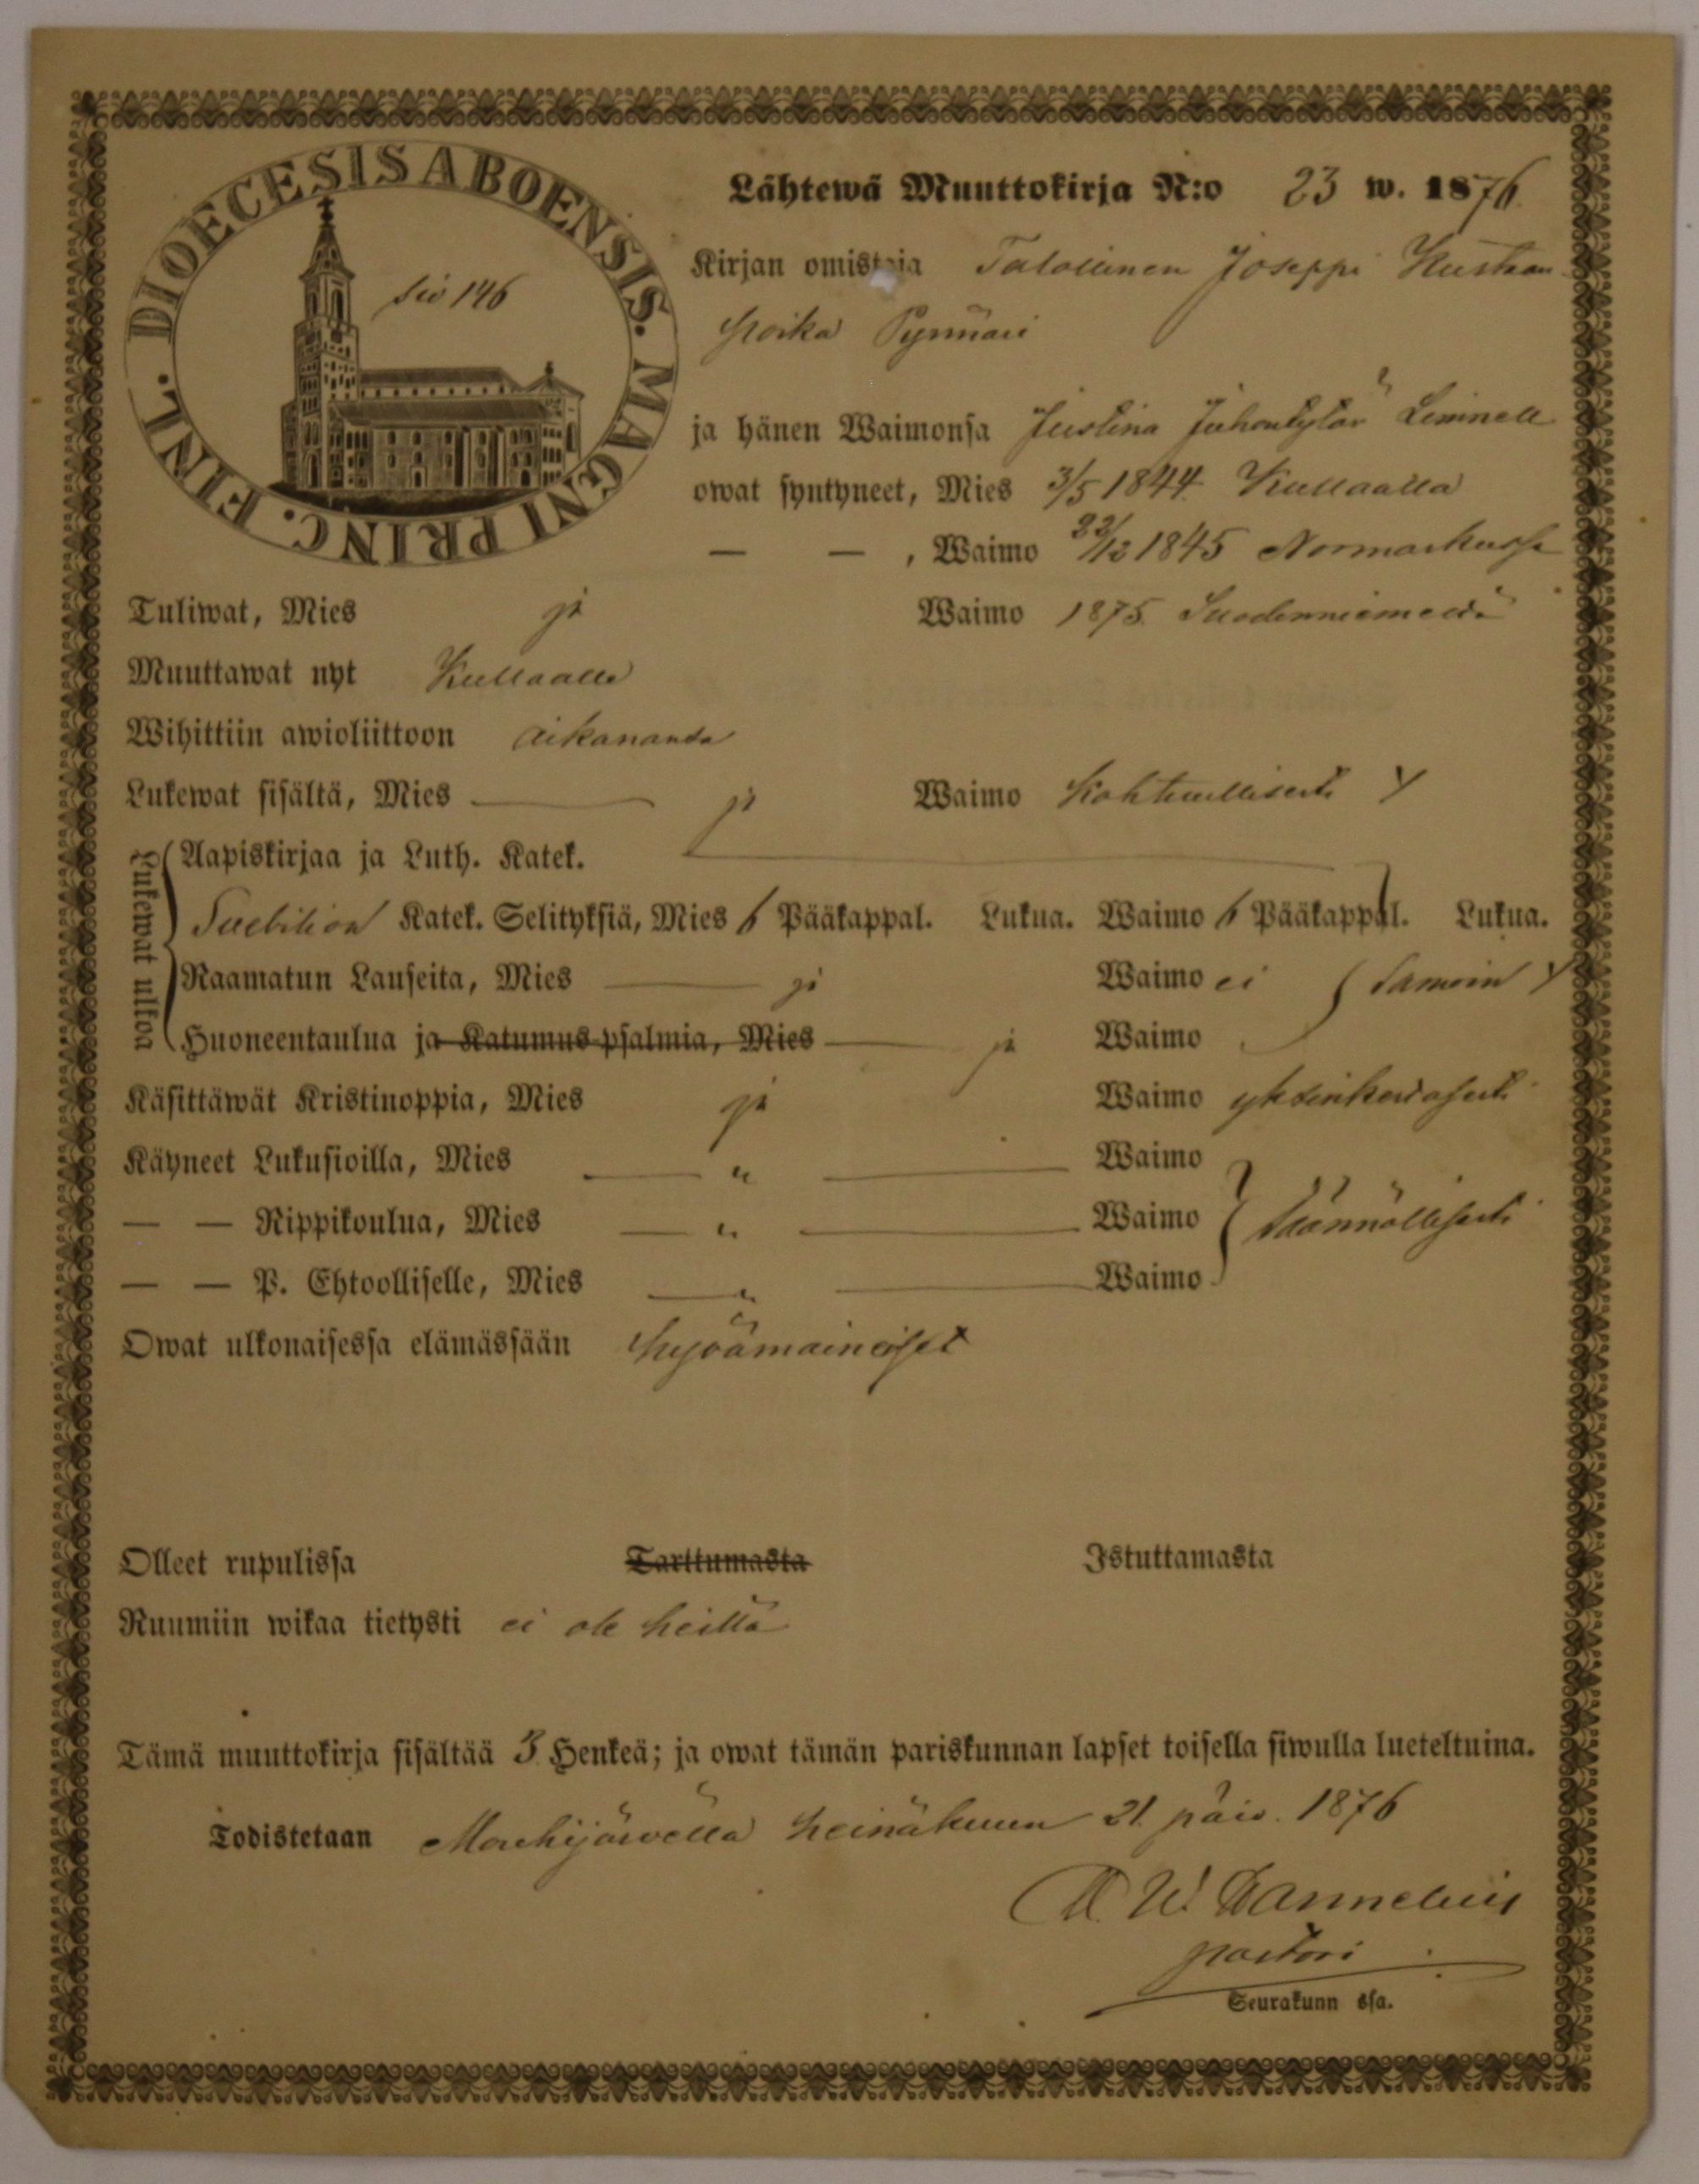 DIOECESIS ABOENSIS. MAGNI PRINC. FINL.
siv 146
Lähtewä Muuttokirja N:o 23 w. 1876.
Kirjan omistaja Talollinen Joseppi Kustaan
poika
ja hänen Waimonsa Justina Juhontytär
owat syntyneet, Mies 3/5 1844 Kullaalla
— — , Waimo 22/12 1845 Normarkussa
Tuliwat, Mies ja Waimo 1875 Suodenniemeltä
Muuttawat nyt Kullaalle
Wihittiin awioliittoon aikananda
Lukewat sisältä, Mies — ja Waimo Kohtuullisesti
Lukewat ulkoa
Aapiskirjaa ja Luth. Katek.
Katek. Selityksiä, Mies 6 Pääkappal. Lukua. Waimo 6 Pääkappal. Lukua.
Raamatun Lauseita, Mies — ja Waimo ei Samoin
Huoneentaulua ja Katumus-psalmia, Mies — ja Waimo
Käsittäwät Kristinoppia, Mies ja Waimo yksinkertasesti
Käyneet Lukusioilla, Mies — " — Waimo
— — Rippikoulua, Mies — " — Waimo Säännöllisesti
— — P. Ehtoolliselle, Mies — " — Waimo
Owat ulkonaisessa elämässään hyvämaineiset
Olleet rupulissa Tarttumasta Istuttamasta
Ruumiin wikaa tietysti ei ole heillä
Tämä muuttokirja sisältää 3 Henkeä; ja owat tämän pariskunnan lapset toisella siwulla lueteltuina.
Todistetaan Mouhijärvellä heinäkuun 21. päiv. 1876
pastori
Seurakunn ssa.